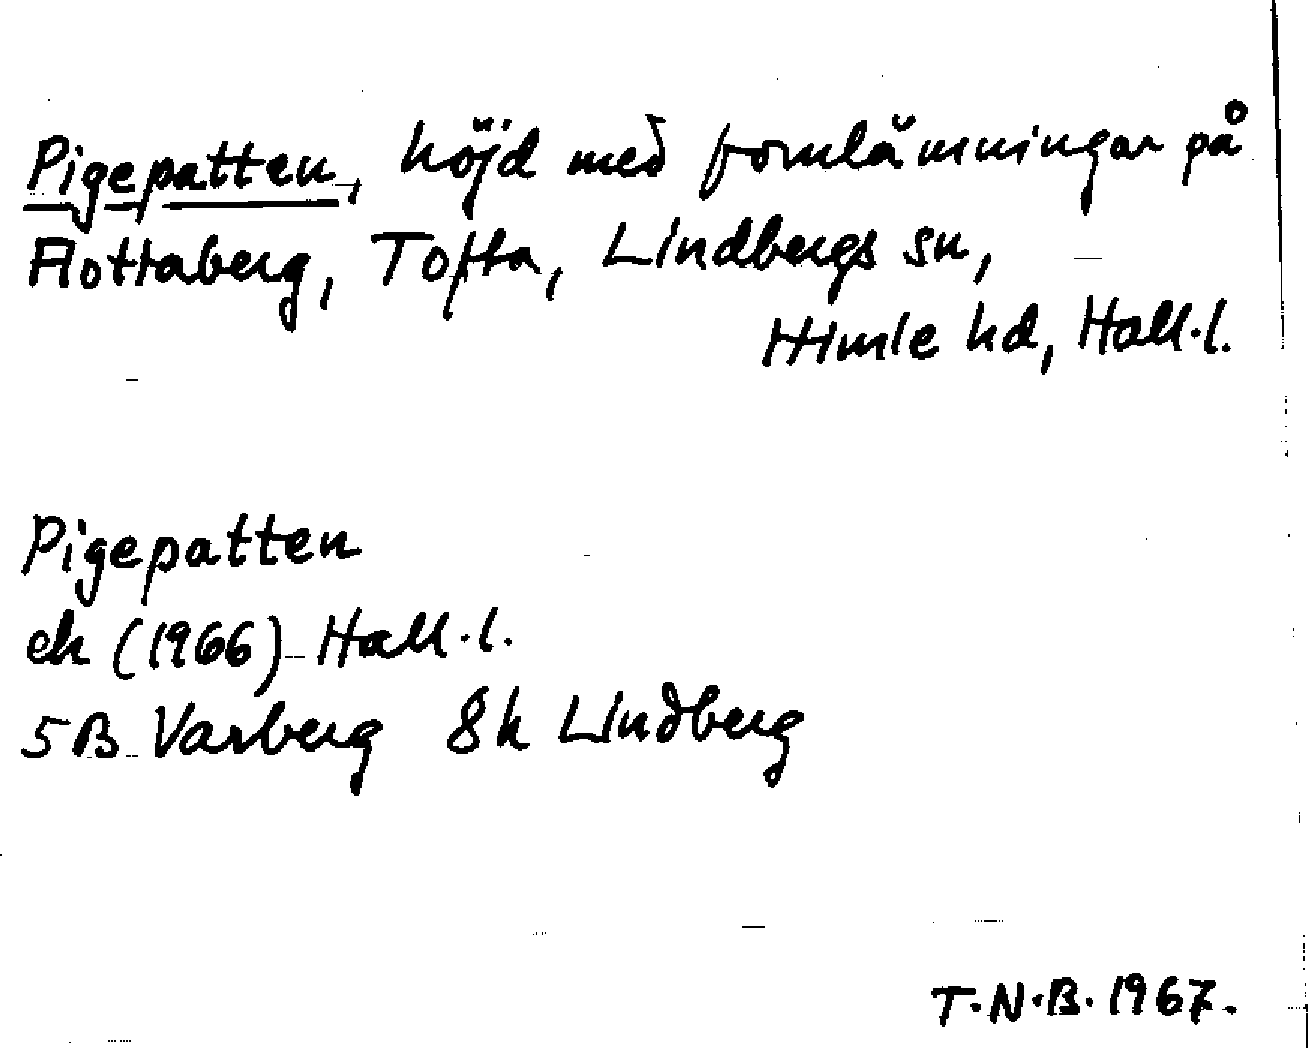 Pigepatten, höjd med fornlämningar på
Flottaberg, Tofta, Lindbergs sn,
Himle hd, Hall.l.
Pigepatten
ek (1966) Hall.l.
5B Varberg 8h Lindberg
T.N.B. 1967.